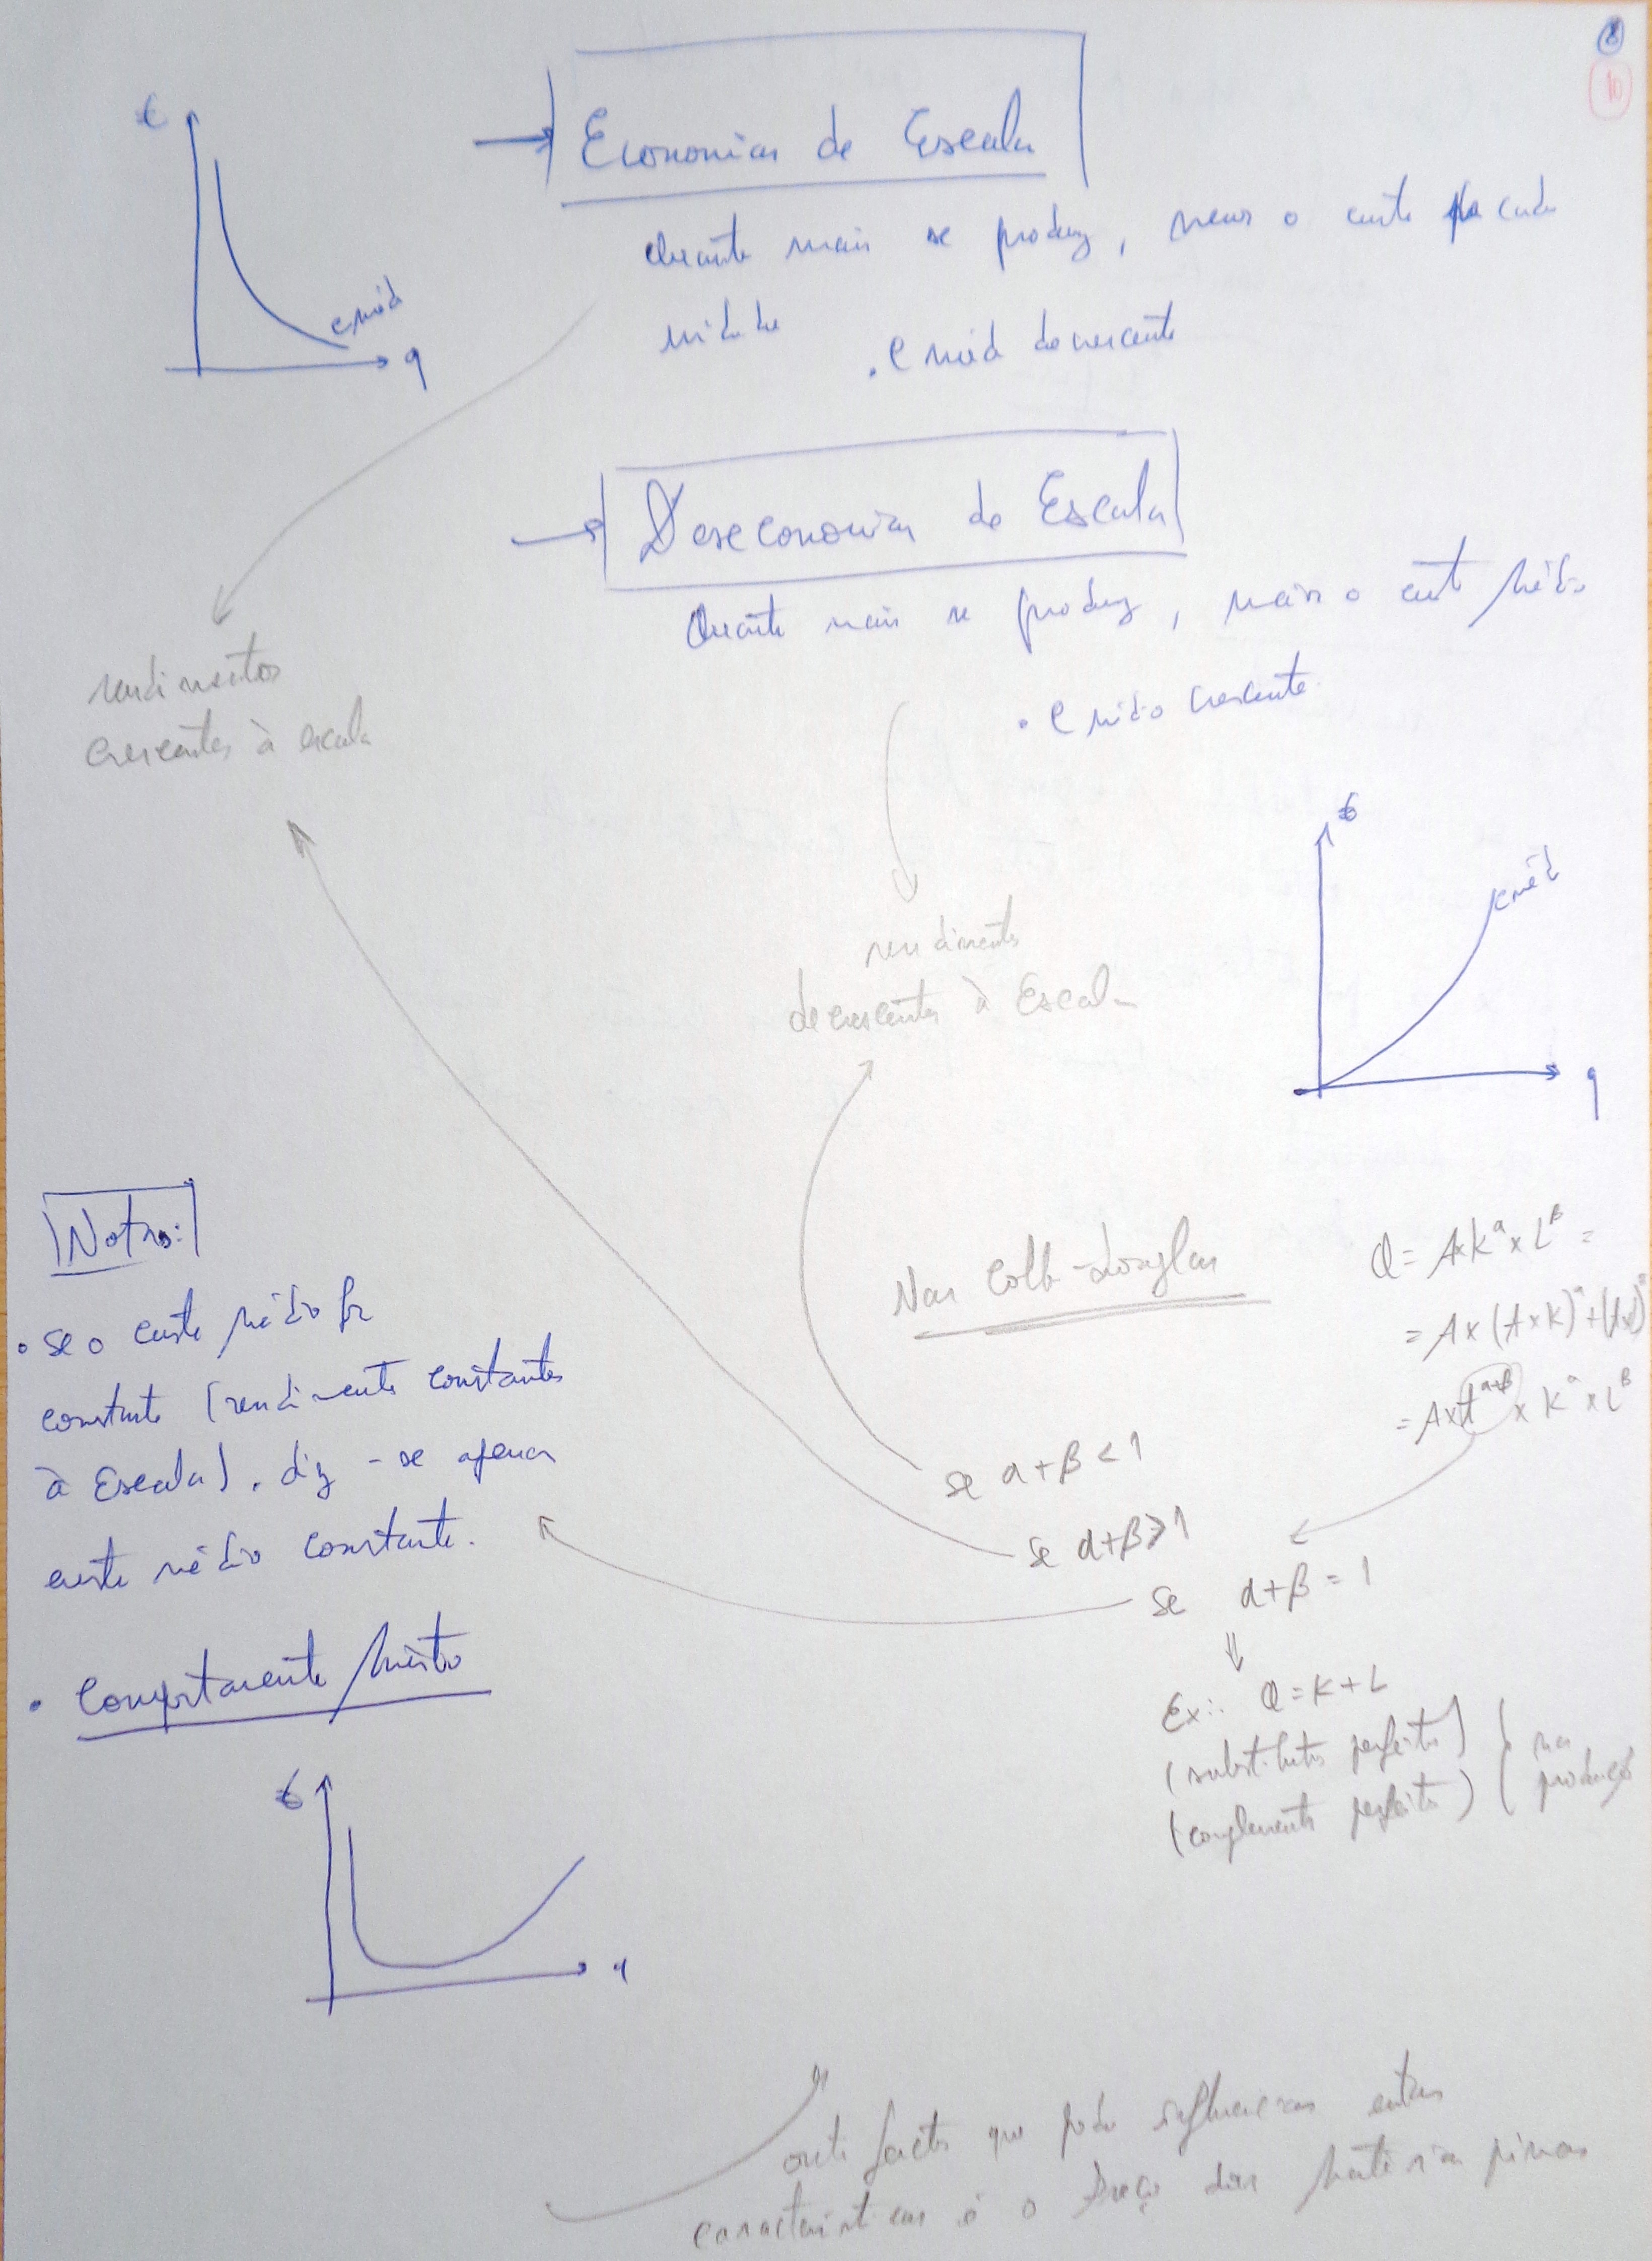 8
10
€
Economias de Escala
Quanto mais se produz, menor o custo de cada
unidade
• C méd decrescente
C méd
q
Deseconomias de Escala
Quanto mais se produz, mais o custo médio
• C médio crescente
rendimentos
crescentes à escala
€
C méd
q
rendimentos
decrescentes à Escala
Notas:
• Se o custo médio for
constante (rendimento constantes
à Escala), diz-se apenas
custo médio constante.
Nas Cobb-Douglas
Q = A×K^α × L^β =
= A× (λ×K)^α + (λ×L)^β
= A×λ^α+β × K^α × L^β
se α+β < 1
se α+β > 1
se α+β = 1
⇓
Ex:. Q = K + L
(substitutos perfeitos)
(complementos perfeitos)
na
produção
• Comportamento Misto
€
q
outro factor que pode influenciar estas
características é o Preço das Matérias primas